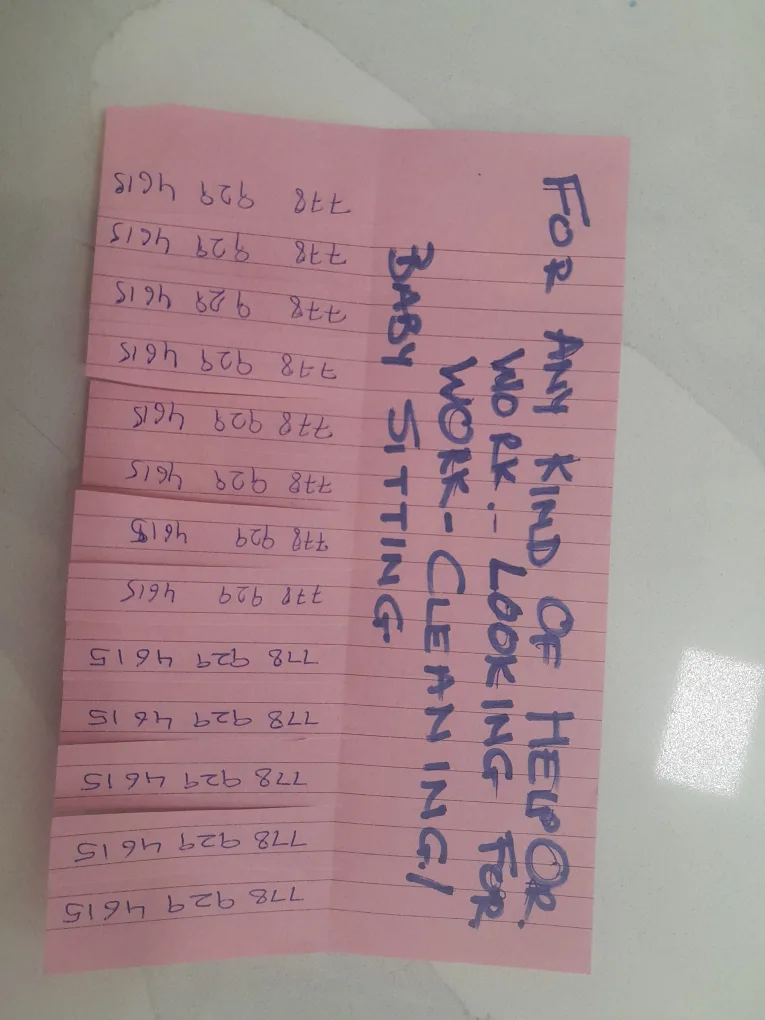 FOR ANY KIND OF HELP OR
WORK:- LOOKING FOR
WORK- CLEANING/
BABY SITTING
778 929 4615
778 929 4615
778 929 4615
778 929 4615
778 929 4615
778 929 4615
778 929 4615
778 929 4615
778 929 4615
778 929 4615
778 929 4615
778 929 4615
778 929 4615